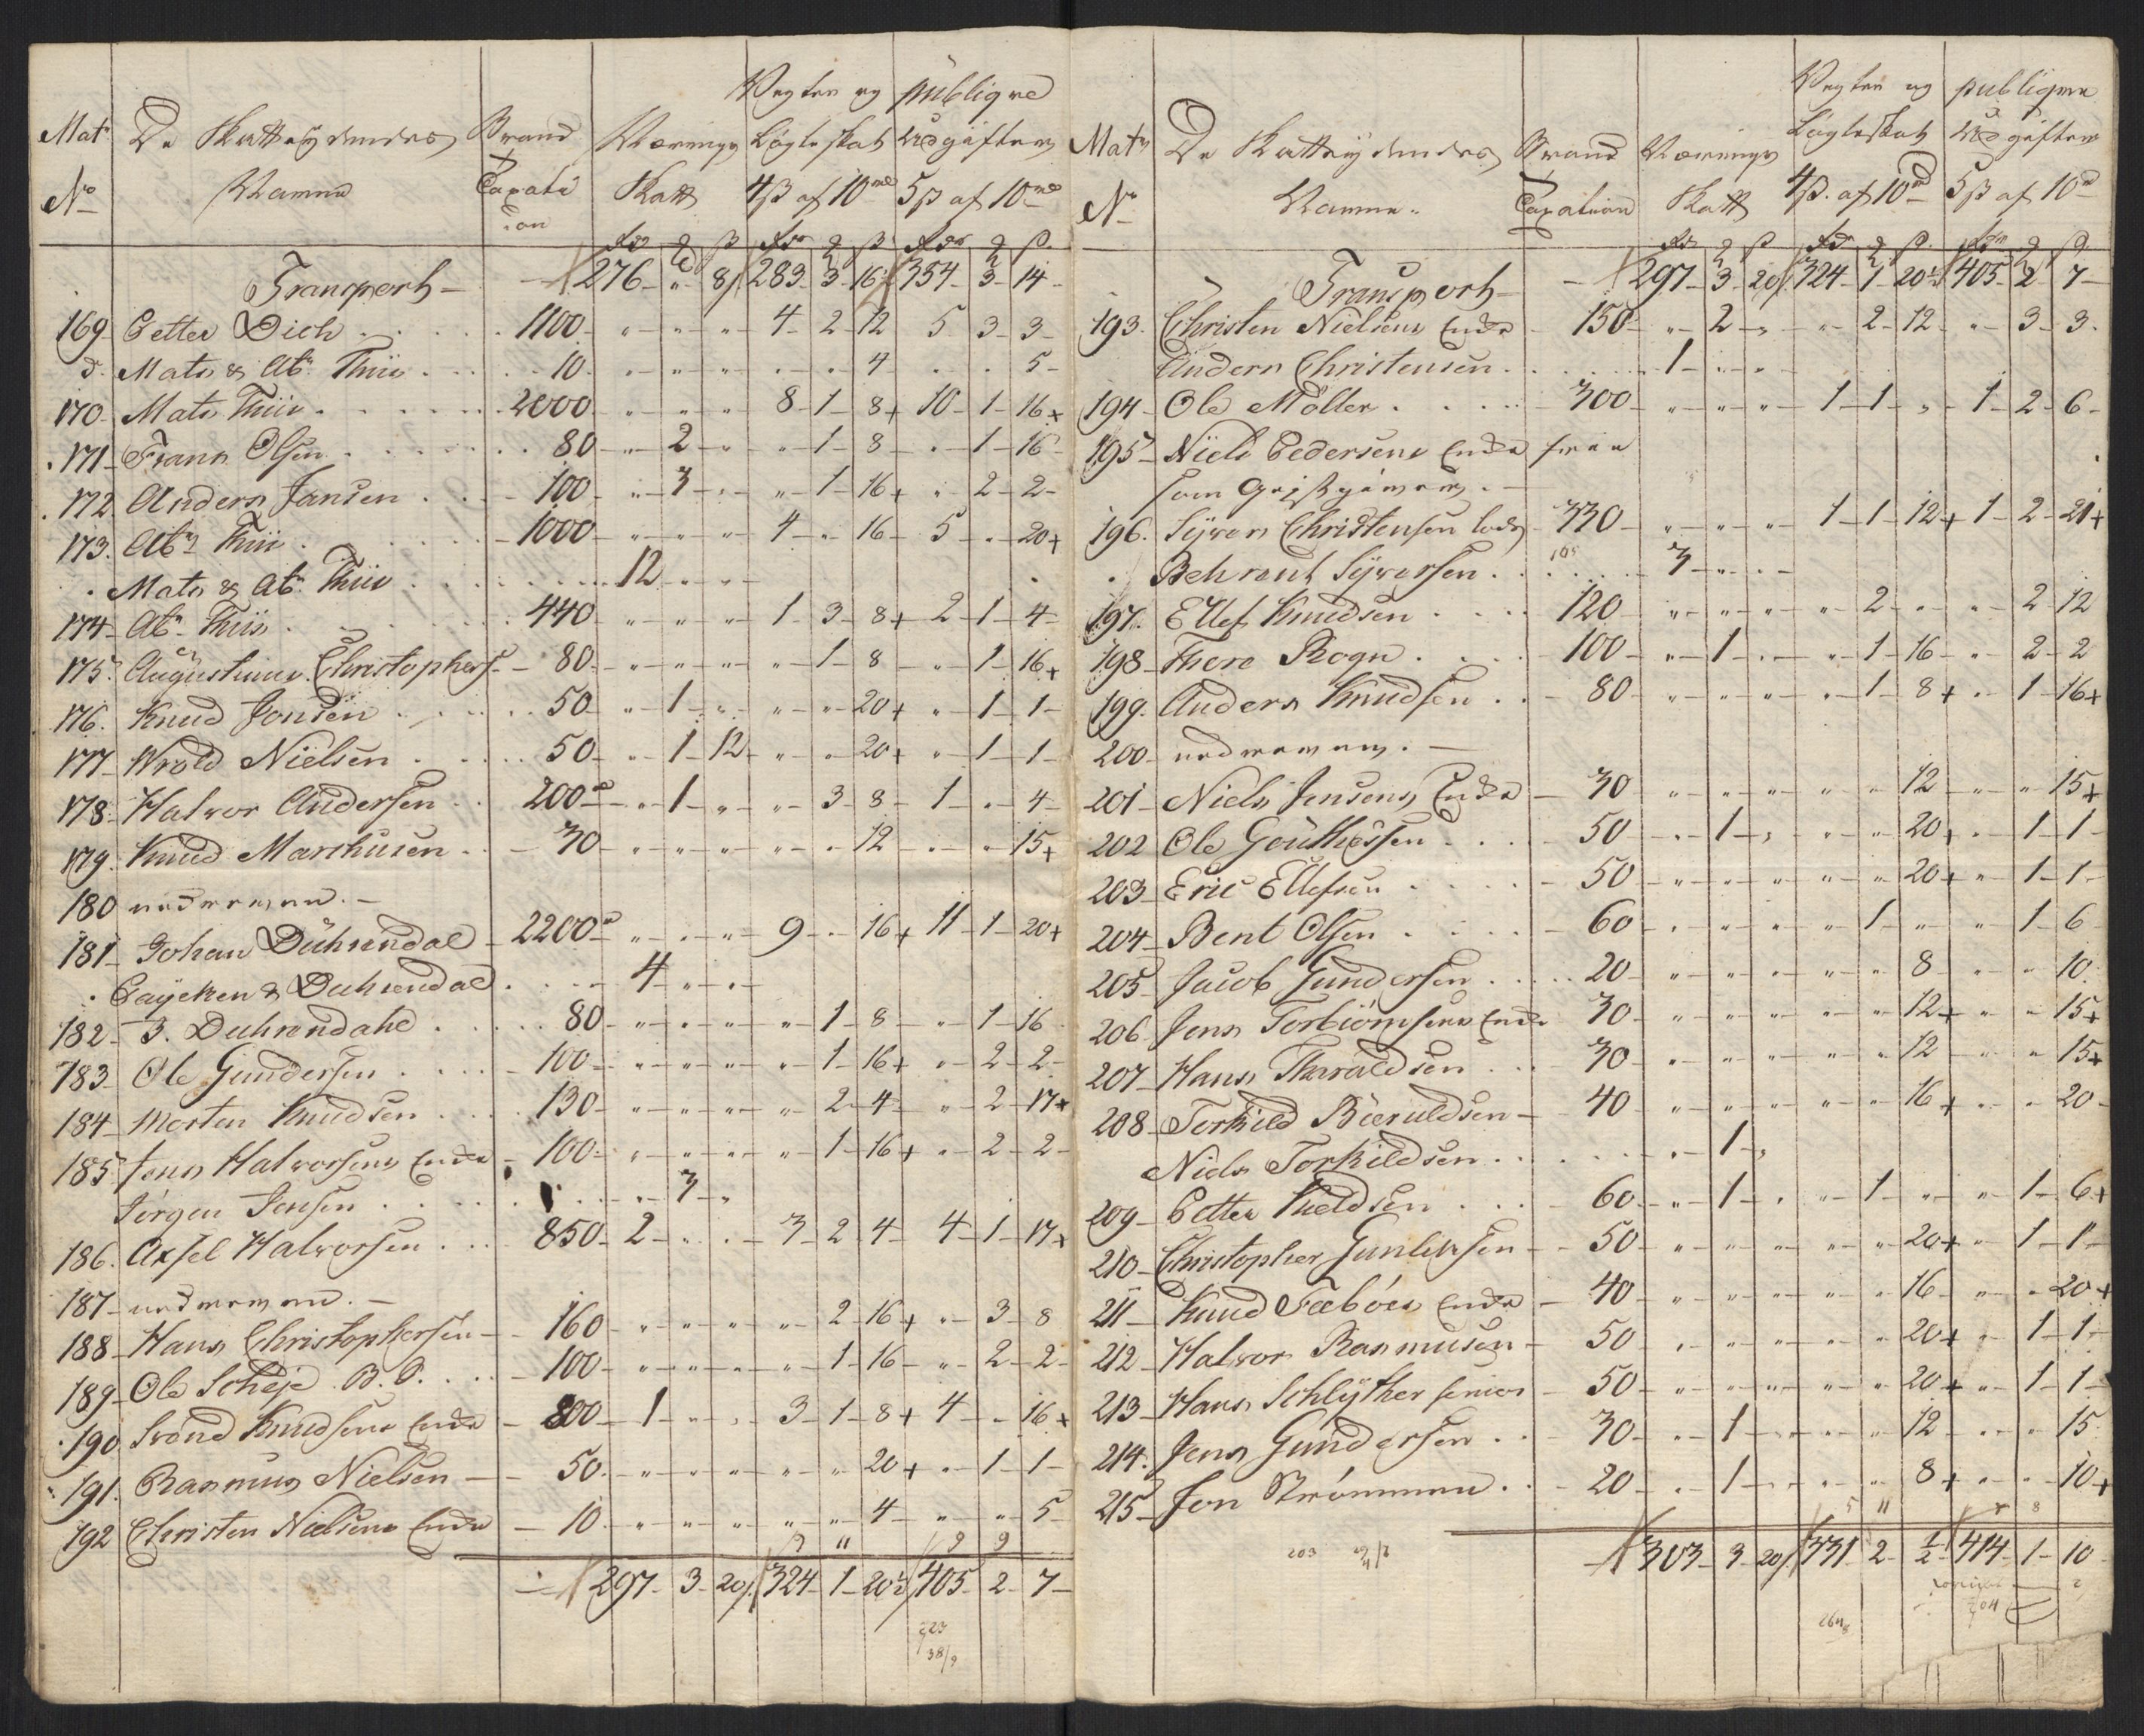 Mat: De Skatteydendes Brand Nærings Vægter og Lögte Skat publiqve Udgifter
No Navne Taxation Skatt 4ß af 10rd 5ß af 10rd
Transport – 276 - " - 8 283 - 3 - 16½ 354 - 3 - 14
169 Petter Dich . . 1100 - " - " - " - 4 - 2 - 12 5 3 - 3 -
d: Mats & Abr. Thiis . . 10 . " - " . . 4 . . 5 -
170 Mats Thiis . . 2000 " " " 8 - 1 - 8+ 10 - 1 - 16+
171 Frans Olsen . . 80 - " - 2 - " - " - 1 - 8 - " - 1 - 16
172 Anders Jansen . . 100 - " - 3 - " - " - 1 - 16+ " - 2 - 2 -
173. Abr. Thiis . . 1000 - " - " - " - 4 - " - 16 - 5 - " - 20+
Mats & Abr. Thiis . . 12 - " - "
174 Abr. Thiis . . 440 - " - " - " - 1 - 3 - 8+ 2 - 1 - 4 -
175 Augustinus Christophers. – 80 - " - " - " - " - 1 - 8 - " - 1 - 16+
176. Knud Jonsen . . 50 " - 1 - " - " - " - 20+ " - 1 - 1 -
177 Wrold Nielsen . . 50 - " - 1 - 12 - " - " - 20+ " - 1 - 1
178 Halvor Andersen . . 200 - " - 1 - " - " - 3 - 8 - 1 - " - 4 -
179 Knud Marchusen . – 30 - " - " - " - " - " - 12 - " - " - 15+
180 nedreven. –
181 Johan Dührendal – 2200 - " - " - " - 9 - " - 16+ 11 - 1 - 20+
Paycken & Duhrendal . . 4 - " - "
182 J. Duhrendahl . . 80 - " - " - " - " - 1 - 8 - " - 1 - 16
183 Ole Gundersen . . 100 - " - " - " - " - 1 - 16+ " - 2 - 2
184 Morten Knudsen . . 130 - " - " - " - " - 2 - 4 - " - 2 - 17+
185 Jens Halvorsens Enke – 100 - " - " - " - " - 1 - 16+ " - 2 - 2 -
Jörgen Jensen . . " - 3 - "
186. Axsel Halvorsen . . 850 - 2 - " - " - 3 - 2 - 4 - 4 - 1 - 17+
187 nedreven. –
188 Hans Christophersen – 160 - " - " - " - " - 2 - 16+ " - 3 - 8
189 Ole Scheje B. P. . 100 - " - " - " - " - 1 - 16 - " - 2 - 2 -
190 Svend Knudsens Enke – 800 - 1 - " - " - 3 - 1 - 8+ 4 - " - 16+
191. Rasmus Nielsen – 50 - " - " - " - " - " - 20+ " - 1 - 1 -
192 Christen Nielsens Enke – 10 - " - " - " - " - " - 4 - " - " - 5 -
297 - 3 - 20 324 - 1 - 20½ 405 - 2 - 7 -
Mat: De Skatteydendes Brand Nærings Vægter og Lögteskat publiqve Udgifter
No Navne. Taxation Skatt 4ß. af 10rd 5ß af 10rd
Transport – 297 - 3 - 20 324 - 1 - 20½ 405 - 2 - 7 -
193. Christen Nielsens Enke – 150 - " - 2 - " - " - 2 - 12 - " - 3 - 3.
Anders Christensen . . 1 - " - "
194 Ole Möller . . 300 - " - " - " - 1 - 1 - " - 1 - 2 - 6 -
195 Niels Pedersens Enke frie
196. Syver Christensen 330 - " - " - " - 1 - 1 - 12+ 1 - 2 - 21+
Behrent Syversen . . 3 - " - "
197. Ellef Knudsen . . 120 " - " - " - " - 2 - " - " - 2 - 12
198 Thore Rogn . . 100 - " - 1 - " - " - 1 - 16 - " - 2 - 2
199. Anders Knudsen . . 80 - " - " - " - " - 1 - 8+ " - 1 - 16+
200 nedreven. –
201 Niels Jensens Enke – 30 " - " - " - " - " - 12 - " - " - 15+
202 Ole Gouthessen . . 50 - " - 1 - " - " - " - 20+ " - 1 - 1 -
203 Eric Ellefsen . . 50 - " - " - " - " - " - 20+ " - 1 - 1 -
204 Bent Olsen . . 60 - " - " - " - " - 1 - " - " - 1 - 6
205 Jacob Gundersen . . 20 - " - " - " - " - " - 8 - " - " - 10
206 Jens Torbiörnsens Enke 30 - " - " - " - " - " - 12+ " - " - 15+
207 Hans Tharaldsen . . 30 - " - " - " - " - " - 12 - " - " - 15+
208 Torkild Bieruldsen – 40 - " - " - " - " - " - 16+ " - " - 20
Niels Torkildsen . . " - 1 - "
209 Petter Kieldsen . . 60 - " - 1 - " - " - 1 - " - " - 1 - 6+
210 Christopher Gunlefsen – 50 - " - " - " - " - " - 20+ " - 1 - 1 -
211 Knud Fæböes Enke – 40 - " - " - " - " - " - 16 - " - " - 20+
212 Halvor Rasmusen – 50 - " - " - " - " - " - 20+ " - 1 - 1
213 Hans Schlyther senior – 50 - " - " - " - " - " - 20+ " - 1 - 1 -
214. Jens Gundersen . . 30 - " - 1 - " - " - " - 12 - " - " - 15
215 Jon Strömmen . . 20 - " - 1 - " - " - " - 8+ " - " - 10+
303 - 3 - 20 331 - 2 - ½ 414 - 1 - 10